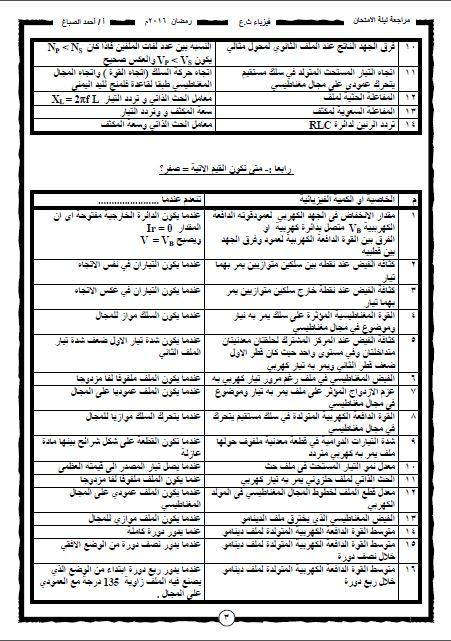 مراجعة ليلة الامتحان فيزياء ث.ع رمضان ٢٠١٦م أ / أحمد الصباغ
١٠ فرق الجهد الناتج عند الملف الثانوي لمحول مثالي النسبه بين عدد لفات الملفين فاذا كان NP < NS
يكون VP < VS والعكس صحيح
١١ اتجاه التيار المستحث المتولد في سلك مستقيم اتجاه حركة السلك (اتجاه القوة ) واتجاه المجال
يتحرك عمودي على مجال مغناطيسي المغناطيسي طبقا لقاعدة فلمنج لليد اليمنى
١٢ المفاعلة الحثية لملف معامل الحث الذاتي و تردد التيار XL = 2πf L
١٣ المفاعلة السعوية لمكثف سعة المكثف و وتردد التيار
١٤ تردد الرنين لدائرة RLC معامل الحث الذاتي وسعة المكثف
رابعا :- متى تكون القيم الاتية = صفر؟
م الخاصية او الكميه الفيزيائية تنعدم عندما ......................
١ مقدار الانخفاض فى الجهد الكهربي لعمودقوته الدافعة عندما يكون الدائرة الخارجية مفتوحة اي ان
الكهربيية VB متصل بدائرة كهربية او المقدار Ir = 0
الفرق بين القوة الدافعة الكهربية لعمود وفرق الجهد ويصبح V = VB
بين قطبيه
٢ كثافه الفيض عند نقطه بين سلكين متوازيين يمر بهما عندما يكون التياران في نفس الاتجاه
تيار
٣ كثافة الفيض عند نقطة خارج سلكين متوازيين يمر عندما يكون التياران في عكس الاتجاه
بهما تيار
٤ القوة المغناطيسية المؤثرة على سلك يمر به تيار عندما يكون السلك مواز للمجال
وموضوع في مجال مغناطيسي
٥ كثافة الفيض عند المركز المشترك لحلقتان معدنيتان عندما يكون شدة تيار الاول ضعف شدة تيار
متداخلتان وفي مستوى واحد حيث كان قطر الاول الملف الثاني
ضعف قطر الثاني ويمر به تيار كهربي
٦ الفيض المغناطيسي في ملف رغم مرور تيار كهربي به عندما يكون الملف ملفوفا لفا مزدوجا
٧ عزم الازدواج المؤثر على ملف يمر به تيار وموضوع عندما يكون الملف عموديا على المجال
في مجال مغناطيسي
٨ القوة الدافعة الكهربية المتولدة في سلك مستقيم يتحرك عندما يتحرك السلك موازيا للمجال
في مجال مغناطيسي
٩ شدة التيارات الدوامية في قطعة معدنية ملفوف حولها عندما تكون القطعة على شكل شرائح بينها مادة
ملف يمر به كهربي متردد عازلة
١٠ معدل نمو التيار المستحث في ملف حث عندما يصل تيار المصدر الى قيمته العظمى
١١ الحث الذاتي لملف حلزوني يمر به تيار كهربي عندما يكون الملف ملفوفا لفا مزدوجا
١٢ معدل قطع الملف لخطوط المجال المغناطيسي فى المولد عندما يكون الملف عمودي على المجال
الكهربي المغناطيسي
١٣ الفيض المغناطيسي الذي يخترق ملف الدينامو عندما يكون الملف موازي للمجال
١٤ متوسط القوة الدافعة الكهربية المتولدة لملف دينامو عندما يدور دورة كاملة
١٥ متوسط القوة الدافعة الكهربية المتولدة لملف دينامو عندما يدور نصف دورة من الوضع الافقي
خلال نصف دورة
١٦ متوسط القوة الدافعة الكهربية المتولدة لملف دينامو عندما يدور ربع دورة ابتداء من الوضع الذي
خلال ربع دورة يصنع فيه الملف زاوية 135 درجة مع العمودي
على المجال .
٣